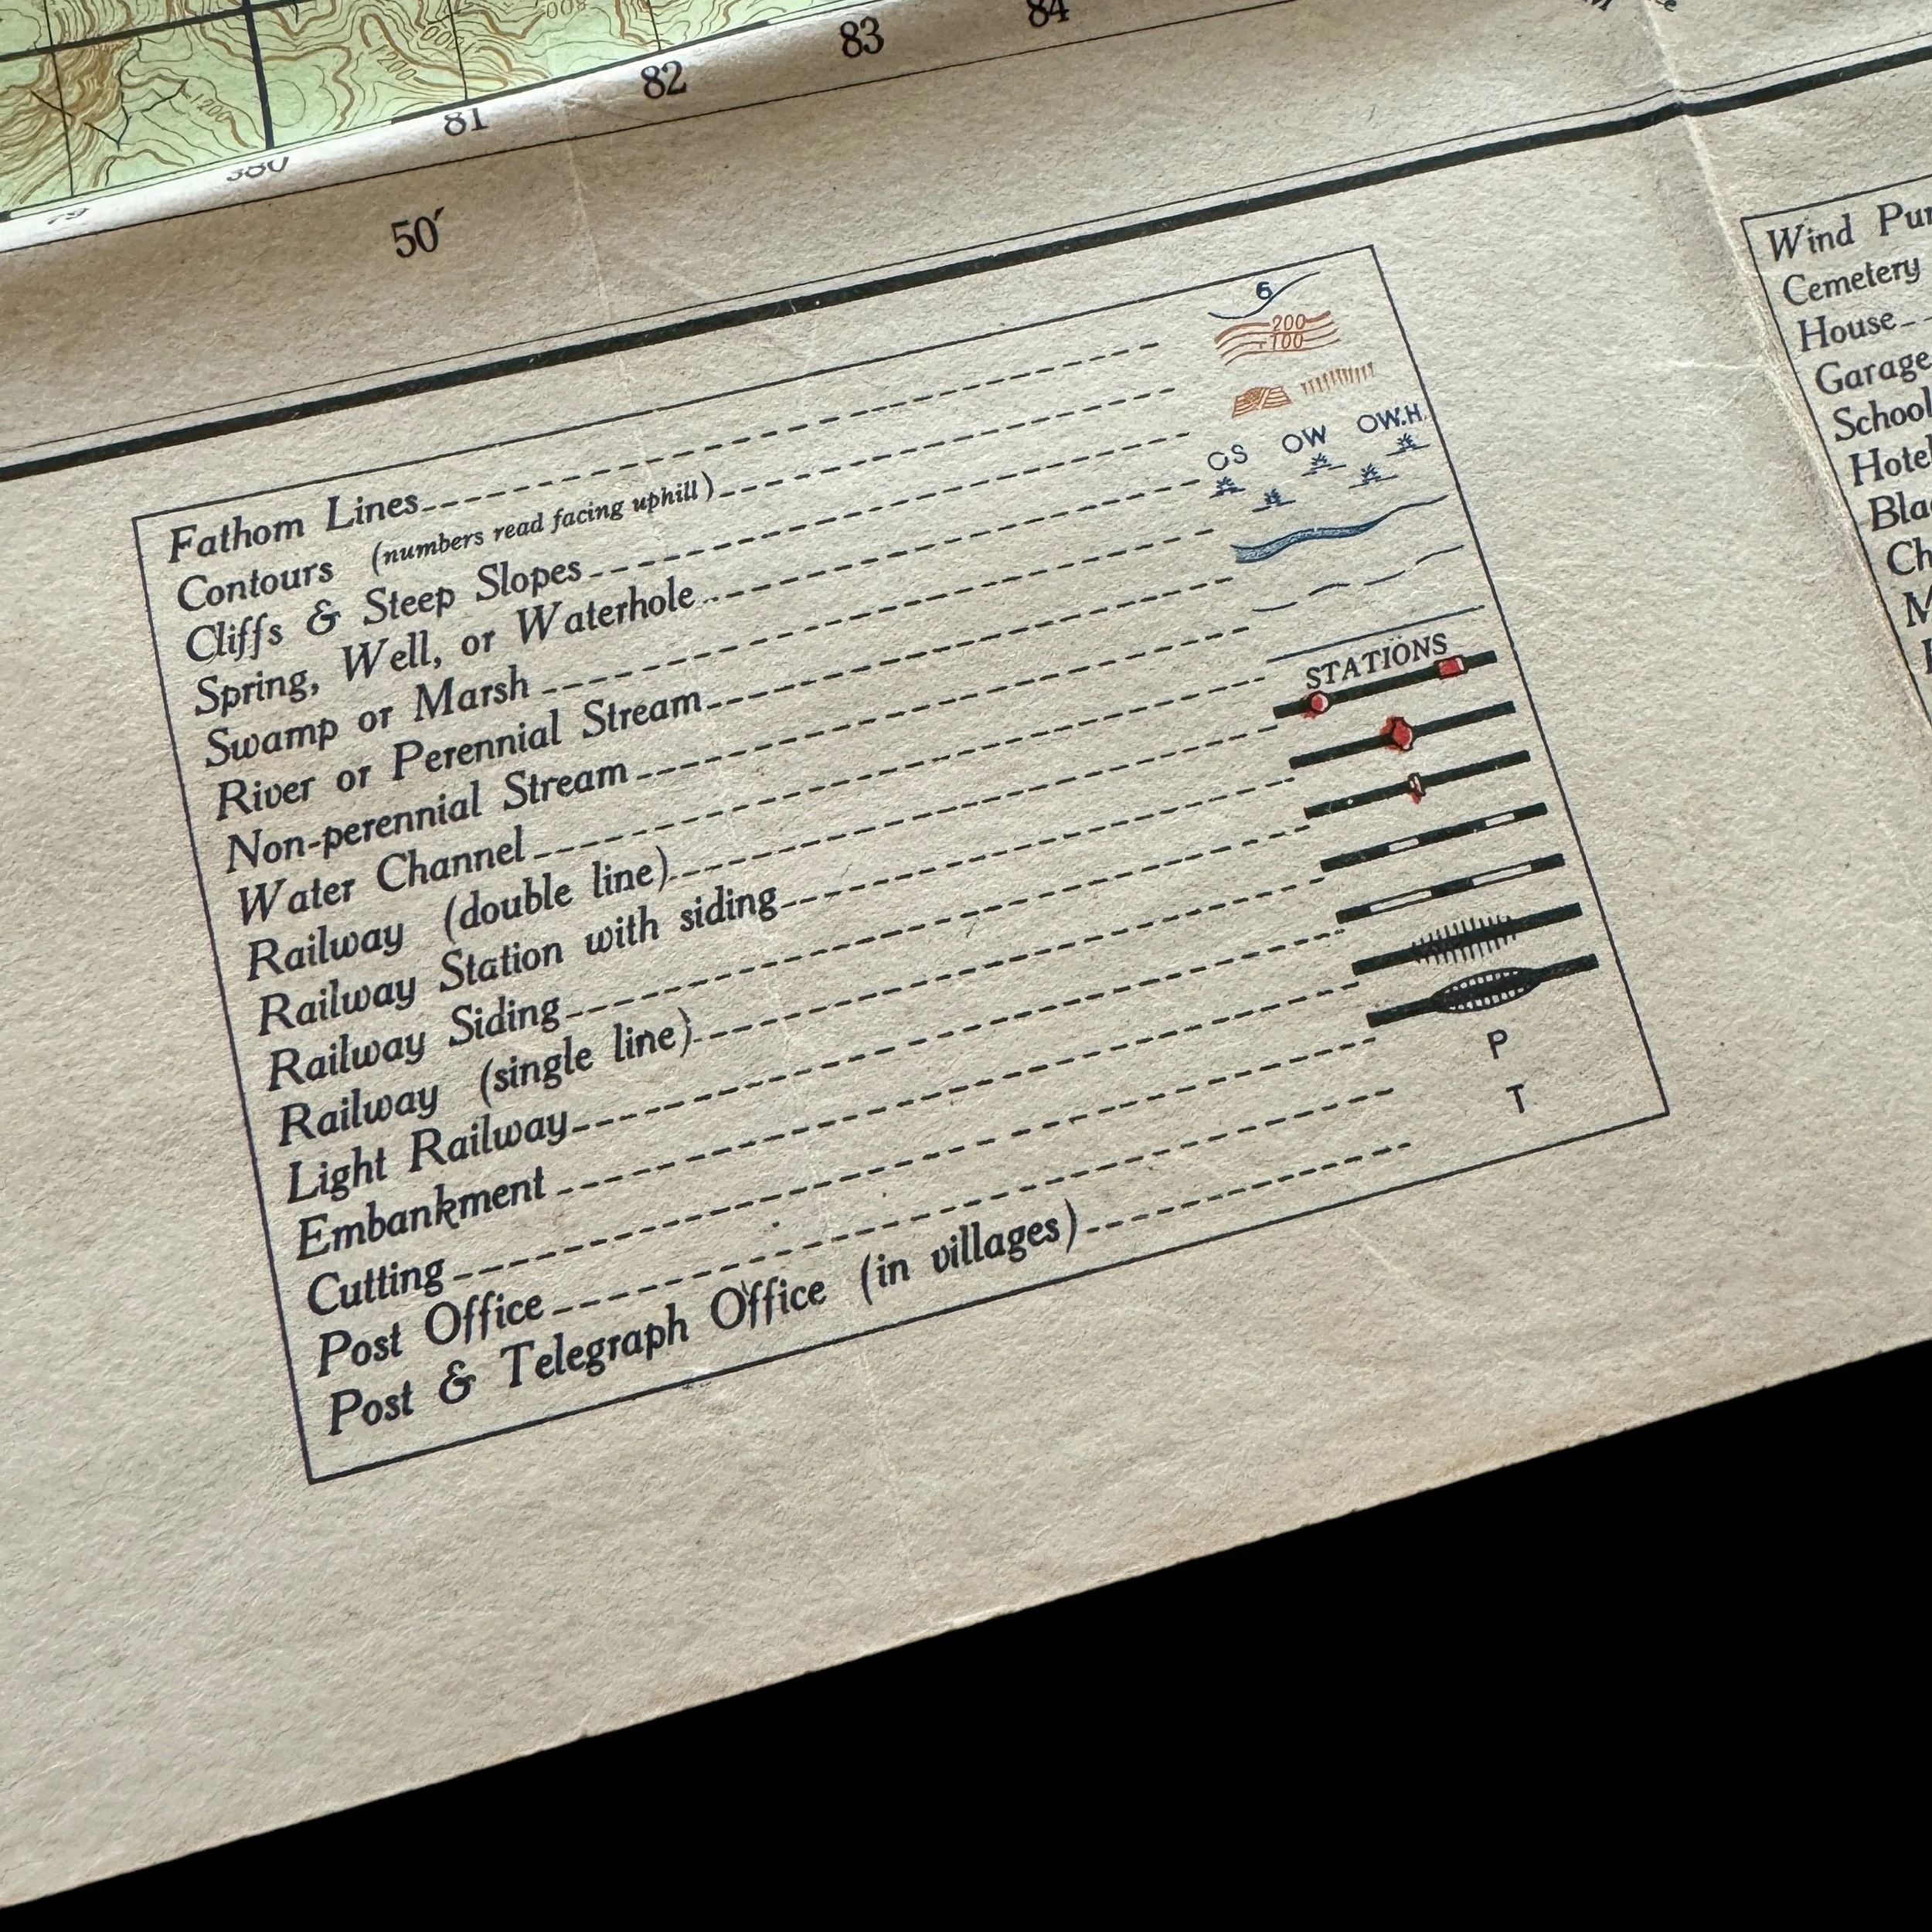 84
83
82
81
380
79
50′
1200
1200
Fathom Lines
6
Contours (numbers read facing uphill)
200
100
Cliffs & Steep Slopes
Spring, Well, or Waterhole
OS OW OW.H.
Swamp or Marsh
River or Perennial Stream
Non-perennial Stream
Water Channel
STATIONS
Railway (double line)
Railway Station with siding
Railway Siding
Railway (single line)
Light Railway
Embankment
Cutting
Post Office P
Post & Telegraph Office (in villages) T
Wind
Cemetery
House
Garage
School